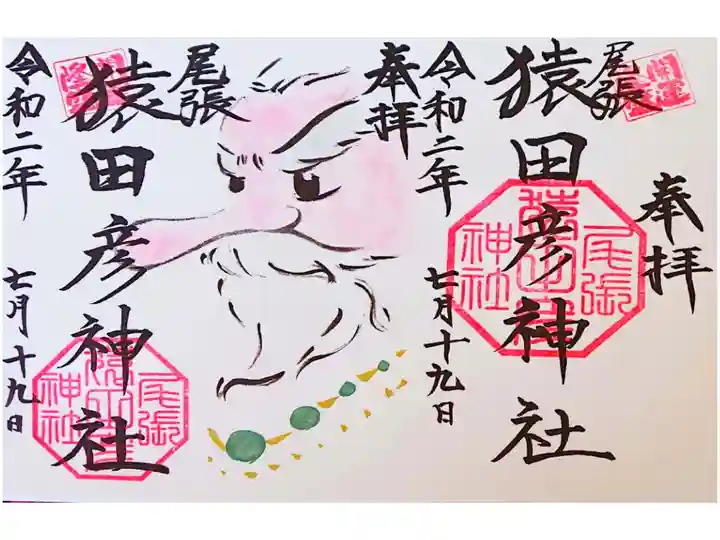 奉拝
開運
尾張
猿田彦神社
尾張
猿田彦
神社
令和二年
七月十九日
奉拝
尾張
猿田彦神社
尾張
猿田彦
神社
令和二年
七月十九日